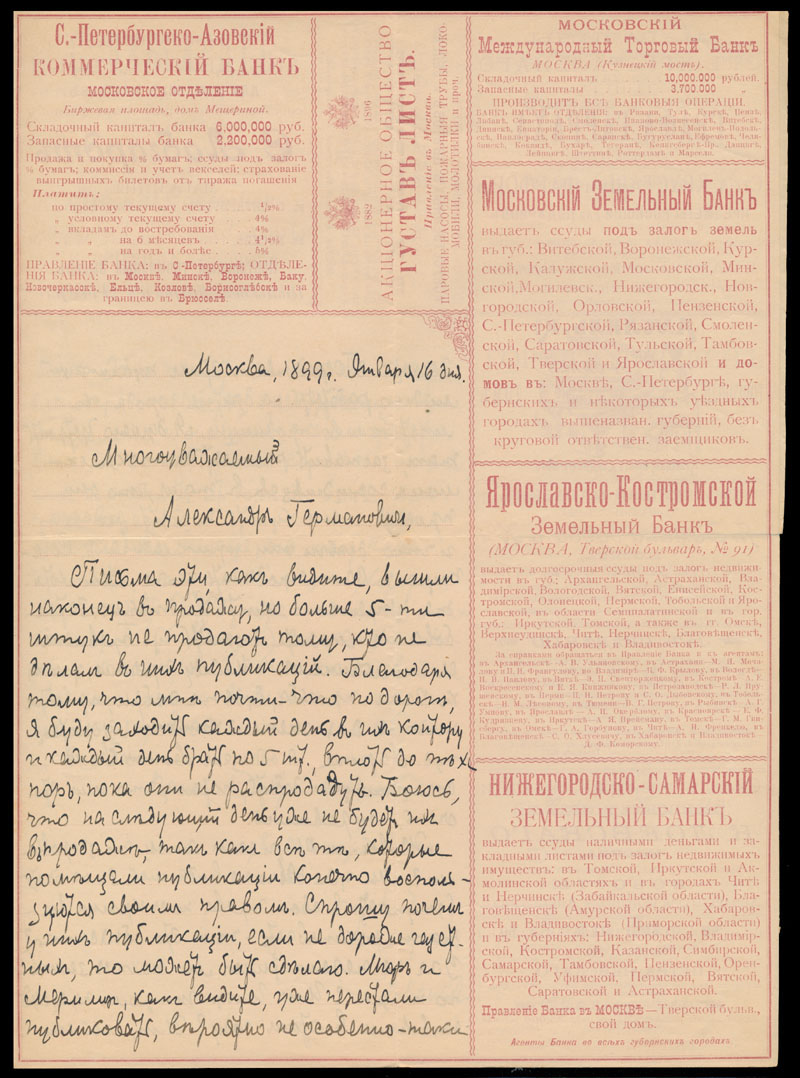 С.-Петербургско-Азовскій
КОММЕРЧЕСКІЙ БАНКЪ
МОСКОВСКОЕ ОТДѢЛЕНІЕ
Биржевая площадь, домъ Мещериной.
Складочный капиталъ банка 6,000,000 руб.
Запасные капиталы банка 2,200,000 руб.
Продажа и покупка % бумагъ; ссуды подъ залогъ
% бумагъ; комиссія и учетъ векселей; страхованіе
выигрышныхъ билетовъ отъ тиража погашенія
Платитъ:
по простому текущему счету . . . .
„ условному текущему счету . . . . 4%
„ вкладамъ до востребованія . . . . 4%
„ „ на 6 мѣсяцевъ . . . . 4½%
„ „ на годъ и болѣе . . . . 5%
ПРАВЛЕНІЕ БАНКА: въ С-Петербургѣ; ОТДѢЛЕ-
НІЯ БАНКА: въ Москвѣ, Минскѣ, Воронежѣ, Баку,
Новочеркасскѣ, Ельцѣ, Козловѣ, Борисоглѣбскѣ и за
границею въ Брюсселѣ.
1882 1896
АКЦІОНЕРНОЕ ОБЩЕСТВО
ГУСТАВЪ ЛИСТЪ.
Правленіе въ Москвѣ.
ПАРОВЫЕ НАСОСЫ, ПОЖАРНЫЯ ТРУБЫ, ЛОКО-
МОБИЛИ, МОЛОТИЛКИ и проч.
МОСКОВСКІЙ
Международный Торговый Банкъ
МОСКВА (Кузнецкій мостъ).
Складочный капиталъ . . . . 10,000.000 рублей.
Запасные капиталы . . . . 3.700.000 „
ПРОИЗВОДИТЪ ВСѢ БАНКОВЫЯ ОПЕРАЦІИ.
БАНКЪ ИМѢЕТЪ ОТДѢЛЕНІЯ: въ Рязани, Тулѣ, Курскѣ, Пензѣ,
Лейпцигъ, Штеттинъ, Роттердамъ и Марсель.
Московскій Земельный Банкъ
выдаетъ ссуды подъ залогъ земель
въ губ.: Витебской, Воронежской, Кур-
ской, Калужской, Московской, Мин-
ской, Могилевск., Нижегородск., Нов-
городской, Орловской, Пензенской,
С.-Петербургской, Рязанской, Смолен-
ской, Саратовской, Тульской, Тамбов-
ской, Тверской и Ярославской и до-
мовъ въ: Москвѣ, С.-Петербургѣ, гу-
бернскихъ и нѣкоторыхъ уѣздныхъ
городахъ вышеназван. губерній, безъ
круговой отвѣтствен. заемщиковъ.
Ярославско-Костромской
Земельный Банкъ
(МОСКВА, Тверской бульваръ, № 91)
выдаетъ долгосрочныя ссуды подъ залогъ недвижи-
мости въ губ.: Архангельской, Астраханской, Вла-
димірской, Вологодской, Вятской, Енисейской, Кос-
тромской, Олонецкой, Пермской, Тобольской и Яро-
славской, въ области Семипалатинской и въ гор.
губ.: Иркутской, Томской, а также въ гг. Омскѣ,
Верхнеудинскѣ, Читѣ, Нерчинскѣ, Благовѣщенскѣ,
Хабаровскѣ и Владивостокѣ.
За справками обращаться въ Правленіе Банка и къ агентамъ:
НИЖЕГОРОДСКО-САМАРСКІЙ
ЗЕМЕЛЬНЫЙ БАНКЪ
выдаетъ ссуды наличными деньгами и за-
кладными листами подъ залогъ недвижимыхъ
имуществъ: въ Томской, Иркутской и Ак-
молинской областяхъ и въ городахъ Читѣ
и Нерчинскѣ (Забайкальской области), Бла-
говѣщенскѣ (Амурской области), Хабаров-
скѣ и Владивостокѣ (Приморской области)
и въ губерніяхъ: Нижегородской, Владимір-
ской, Костромской, Казанской, Симбирской,
Самарской, Тамбовской, Пензенской, Орен-
бургской, Уфимской, Пермской, Вятской,
Саратовской и Астраханской.
Правленіе Банка въ МОСКВѢ—Тверской бульв.,
свой домъ.
Агенты Банка въ всѣхъ губернскихъ городахъ.
Москва, 1899 г. Января 16 дня.
Многоуважаемый
Александръ Германовичъ,
Письма эти, какъ видите, вышли
наконецъ въ продажу, но больше 5-ти
штукъ не продаютъ тому, кто не
дѣлалъ въ нихъ публикацій. Благодаря
тому, что мнѣ почти-что по дорогѣ,
я буду заходить каждый день въ ихъ контору
и каждый день брать по 5 шт., вплоть до тѣхъ
поръ, пока они не распродадутъ. Боюсь,
что на слѣдующій день уже не будетъ ихъ
въ продажѣ, такъ какъ всѣ тѣ, которые
помѣщали публикаціи конечно восполь-
зуются своимъ правомъ. Спрошу почемъ
у нихъ публикаціи, если не дороже газет-
ныхъ, то можетъ быть сдѣлаю. Мюръ и
Мерилизъ, какъ видите, уже перестали
публиковать, вѣроятно не особенно-таки